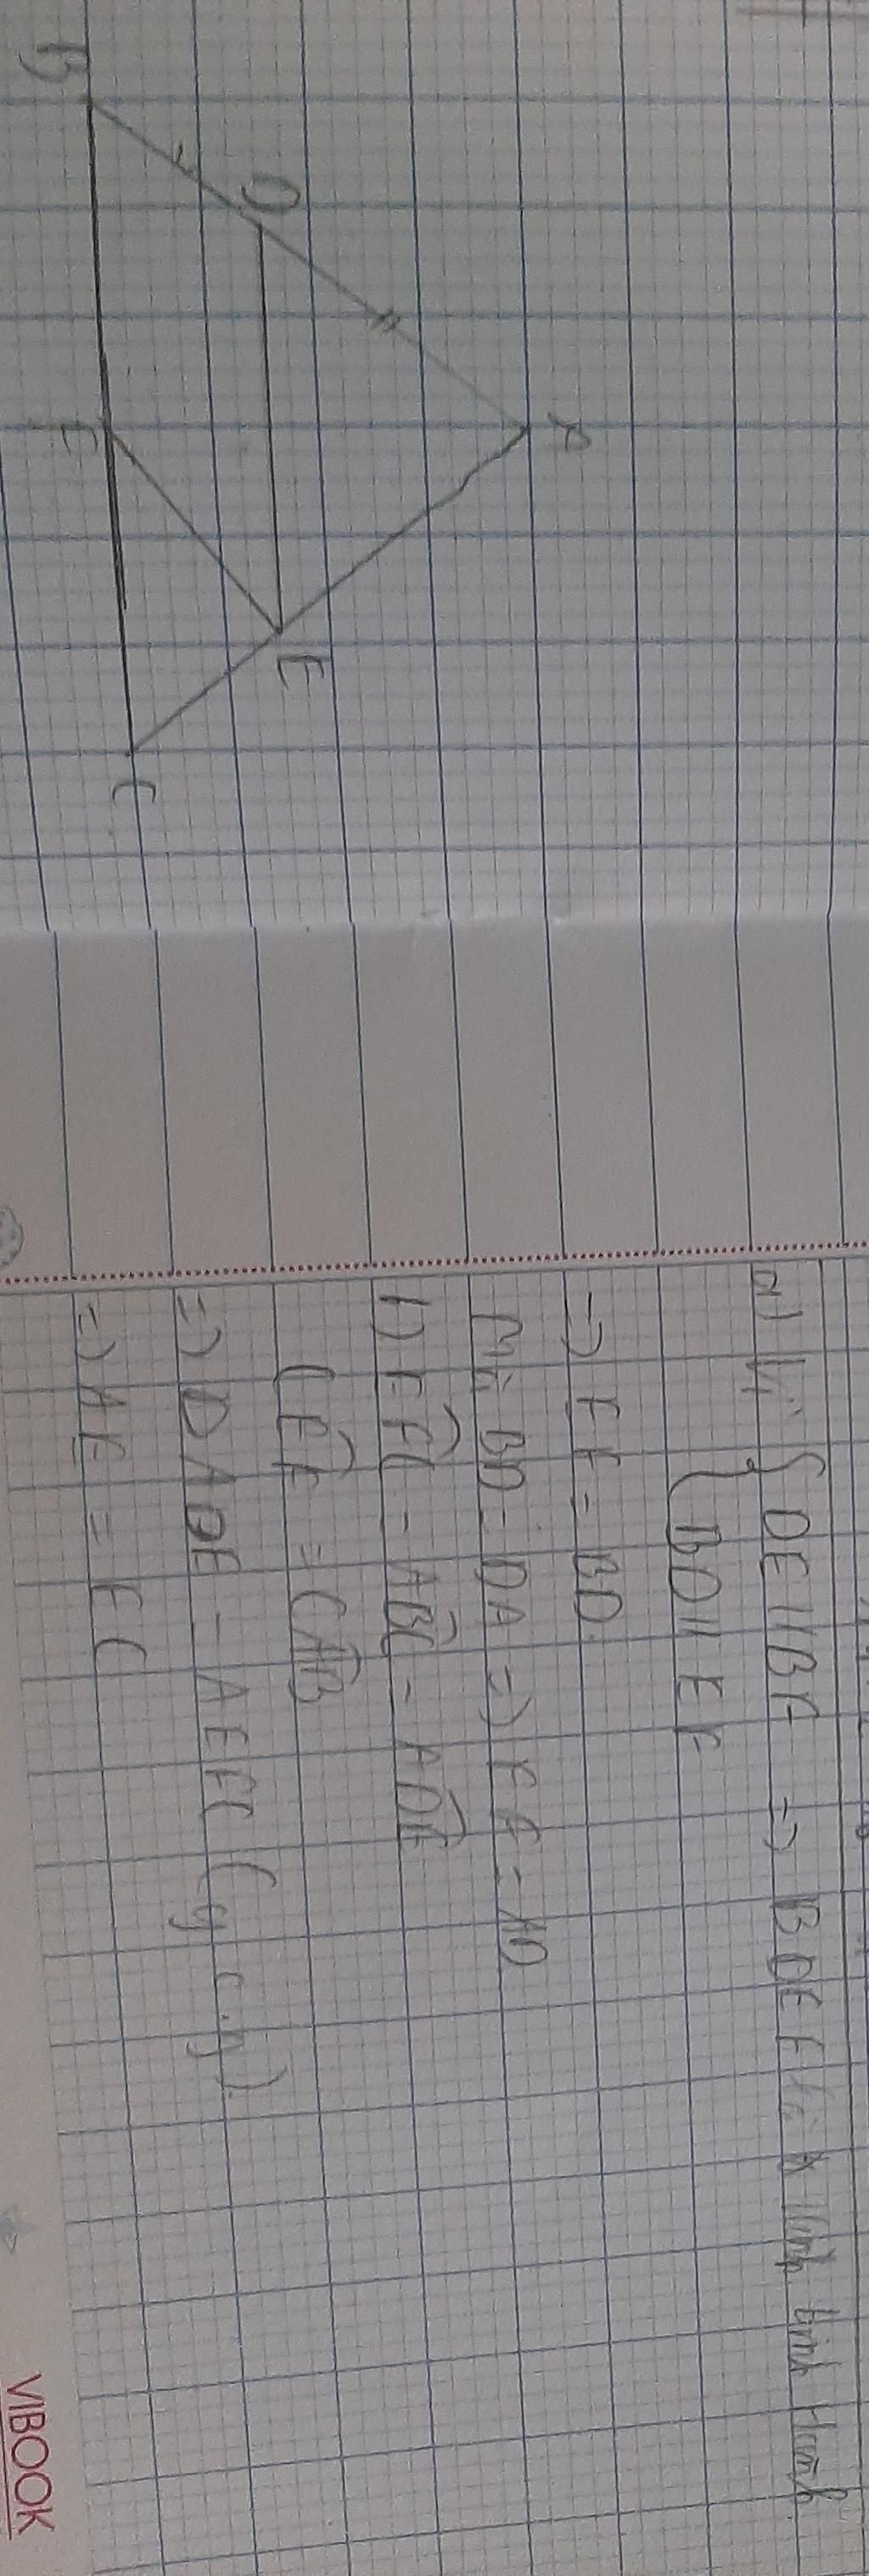 A
B
D
E
F
C
a) Vì { DE // BF => BDEF là hình bình hành
{ BD // EF
=> EF = BD.
Mà BD = DA => EF = AD
b) EFC = ABC = ADE
CEF = CAB
=> DADE = AEFC (g.c.g)
=> AE = EC
VIBOOK